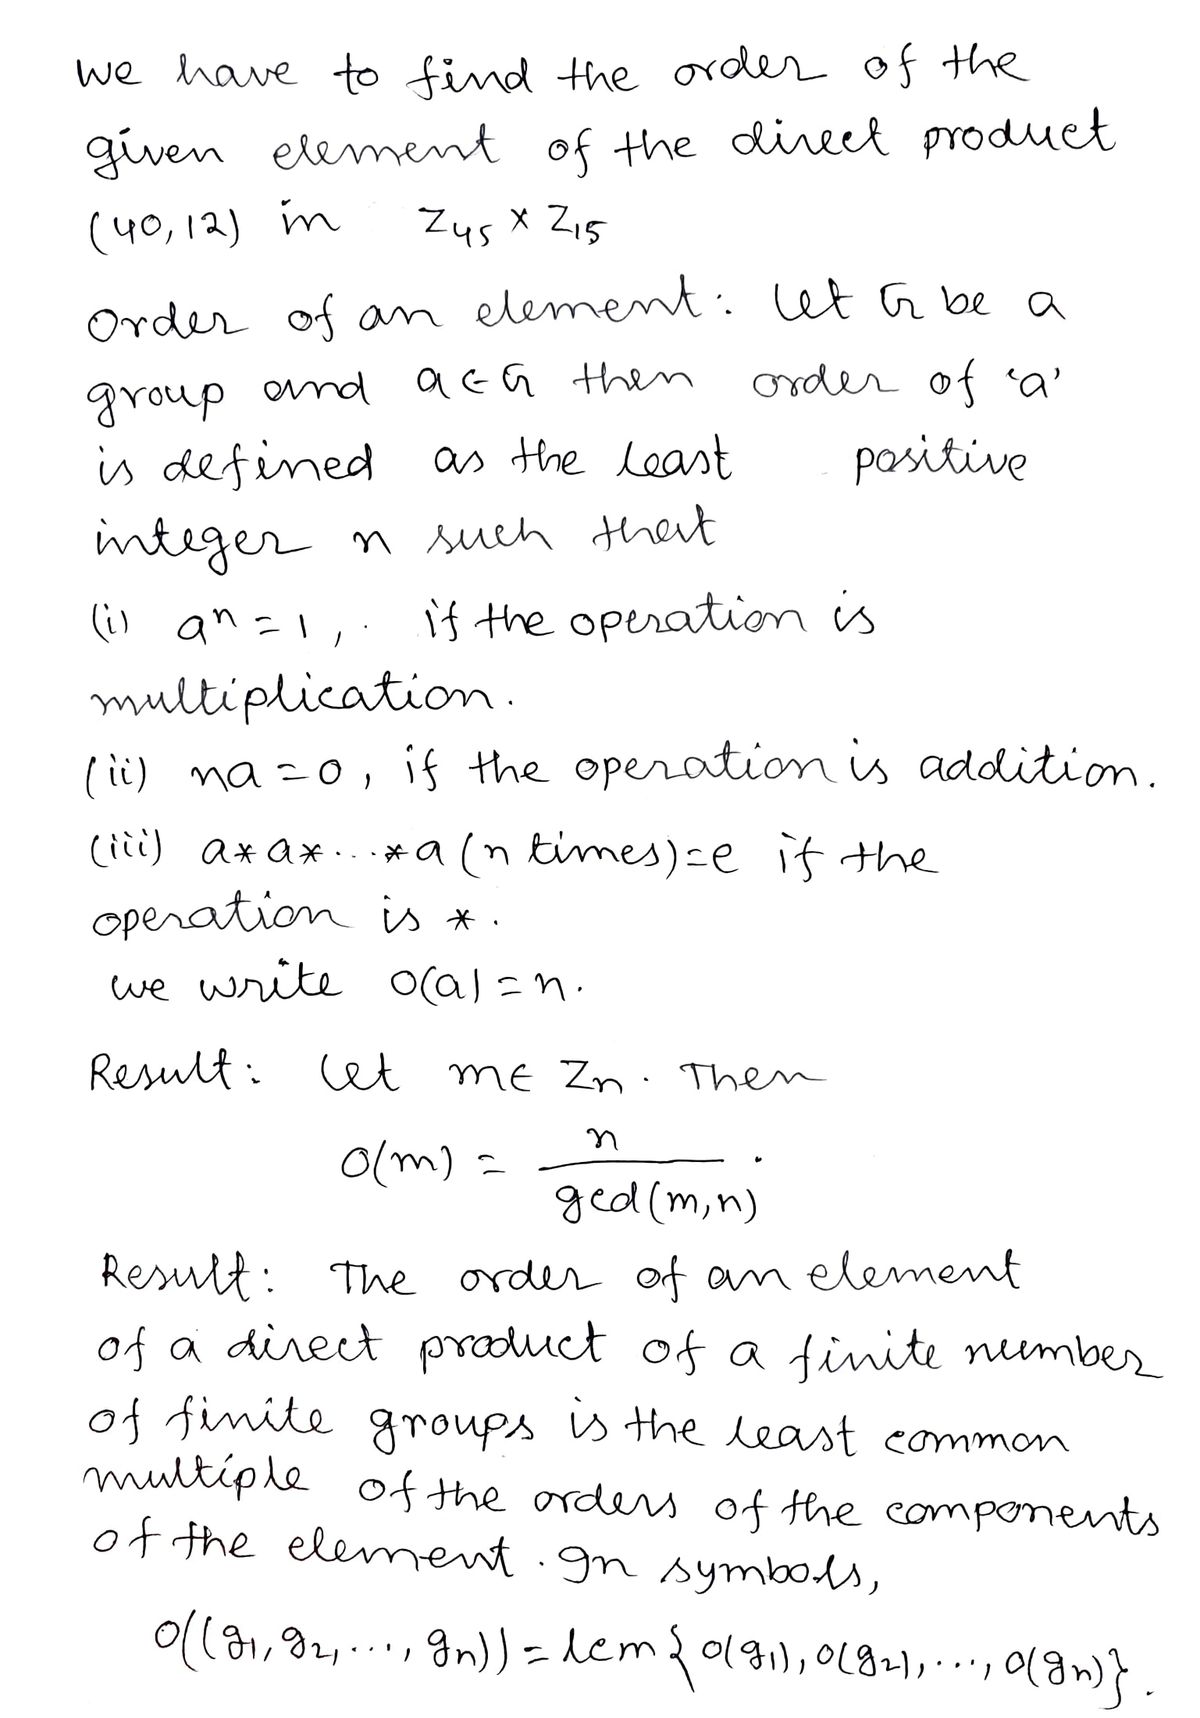 we have to find the order of the
given element of the direct product
(40,12) in Z45 × Z15
Order of an element: let G be a
group and a∈G then order of 'a'
is defined as the least positive
integer n such that
(i) aⁿ=1, if the operation is
multiplication.
(ii) na=0, if the operation is addition.
(iii) a*a*...*a (n times)=e if the
operation is *.
we write O(a)=n.
Result: let m∈ Zn. Then
O(m) = n / gcd(m,n).
Result: The order of an element
of a direct product of a finite number
of finite groups is the least common
multiple of the orders of the components
of the element. In symbols,
O((g1,g2,...,gn))=lcm{O(g1),O(g2),...,O(gn)}.